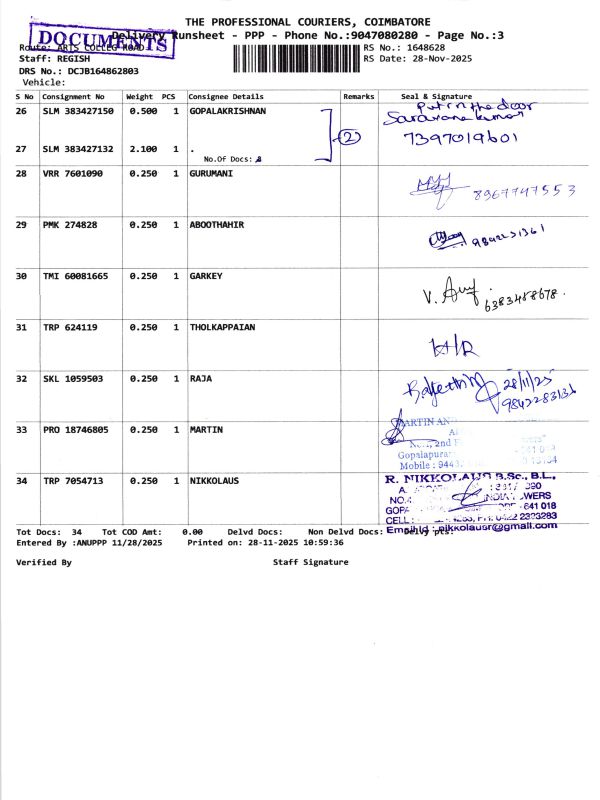 THE PROFESSIONAL COURIERS, COIMBATORE
DOCUMENTS
Delivery Runsheet - PPP - Phone No.:9047080280 - Page No.:3
Route: ARTS COLLEG ROAD
RS No.: 1648628
Staff: REGISH
RS Date: 28-Nov-2025
DRS No.: DCJB164862803
Vehicle:
S No Consignment No Weight PCS Consignee Details Remarks Seal & Signature
26 SLM 383427150 0.500 1 GOPALAKRISHNAN
Put in the door
Saravana kumar
27 SLM 383427132 2.100 1 .
2
7397019601
No.Of Docs:
28 VRR 7601090 0.250 1 GURUMANI
8967747553
29 PMK 274828 0.250 1 ABOOTHAHIR
30 TMI 60081665 0.250 1 GARKEY
6383458678.
31 TRP 624119 0.250 1 THOLKAPPAIAN
32 SKL 1059503 0.250 1 RAJA
28/11/25
33 PRO 18746805 0.250 1 MARTIN
MARTIN AN
2nd
Gopalapura
Mobile : 9443
34 TRP 7054713 0.250 1 NIKKOLAUS
R. NIKKOLAUS B.Sc., B.L.,
641 018
CELL :
2323283
Email Id : nikkolausr@gmail.com
Tot Docs: 34 Tot COD Amt: 0.00 Delvd Docs: Non Delvd Docs: Delvy pts:
Entered By :ANUPPP 11/28/2025 Printed on: 28-11-2025 10:59:36
Verified By Staff Signature